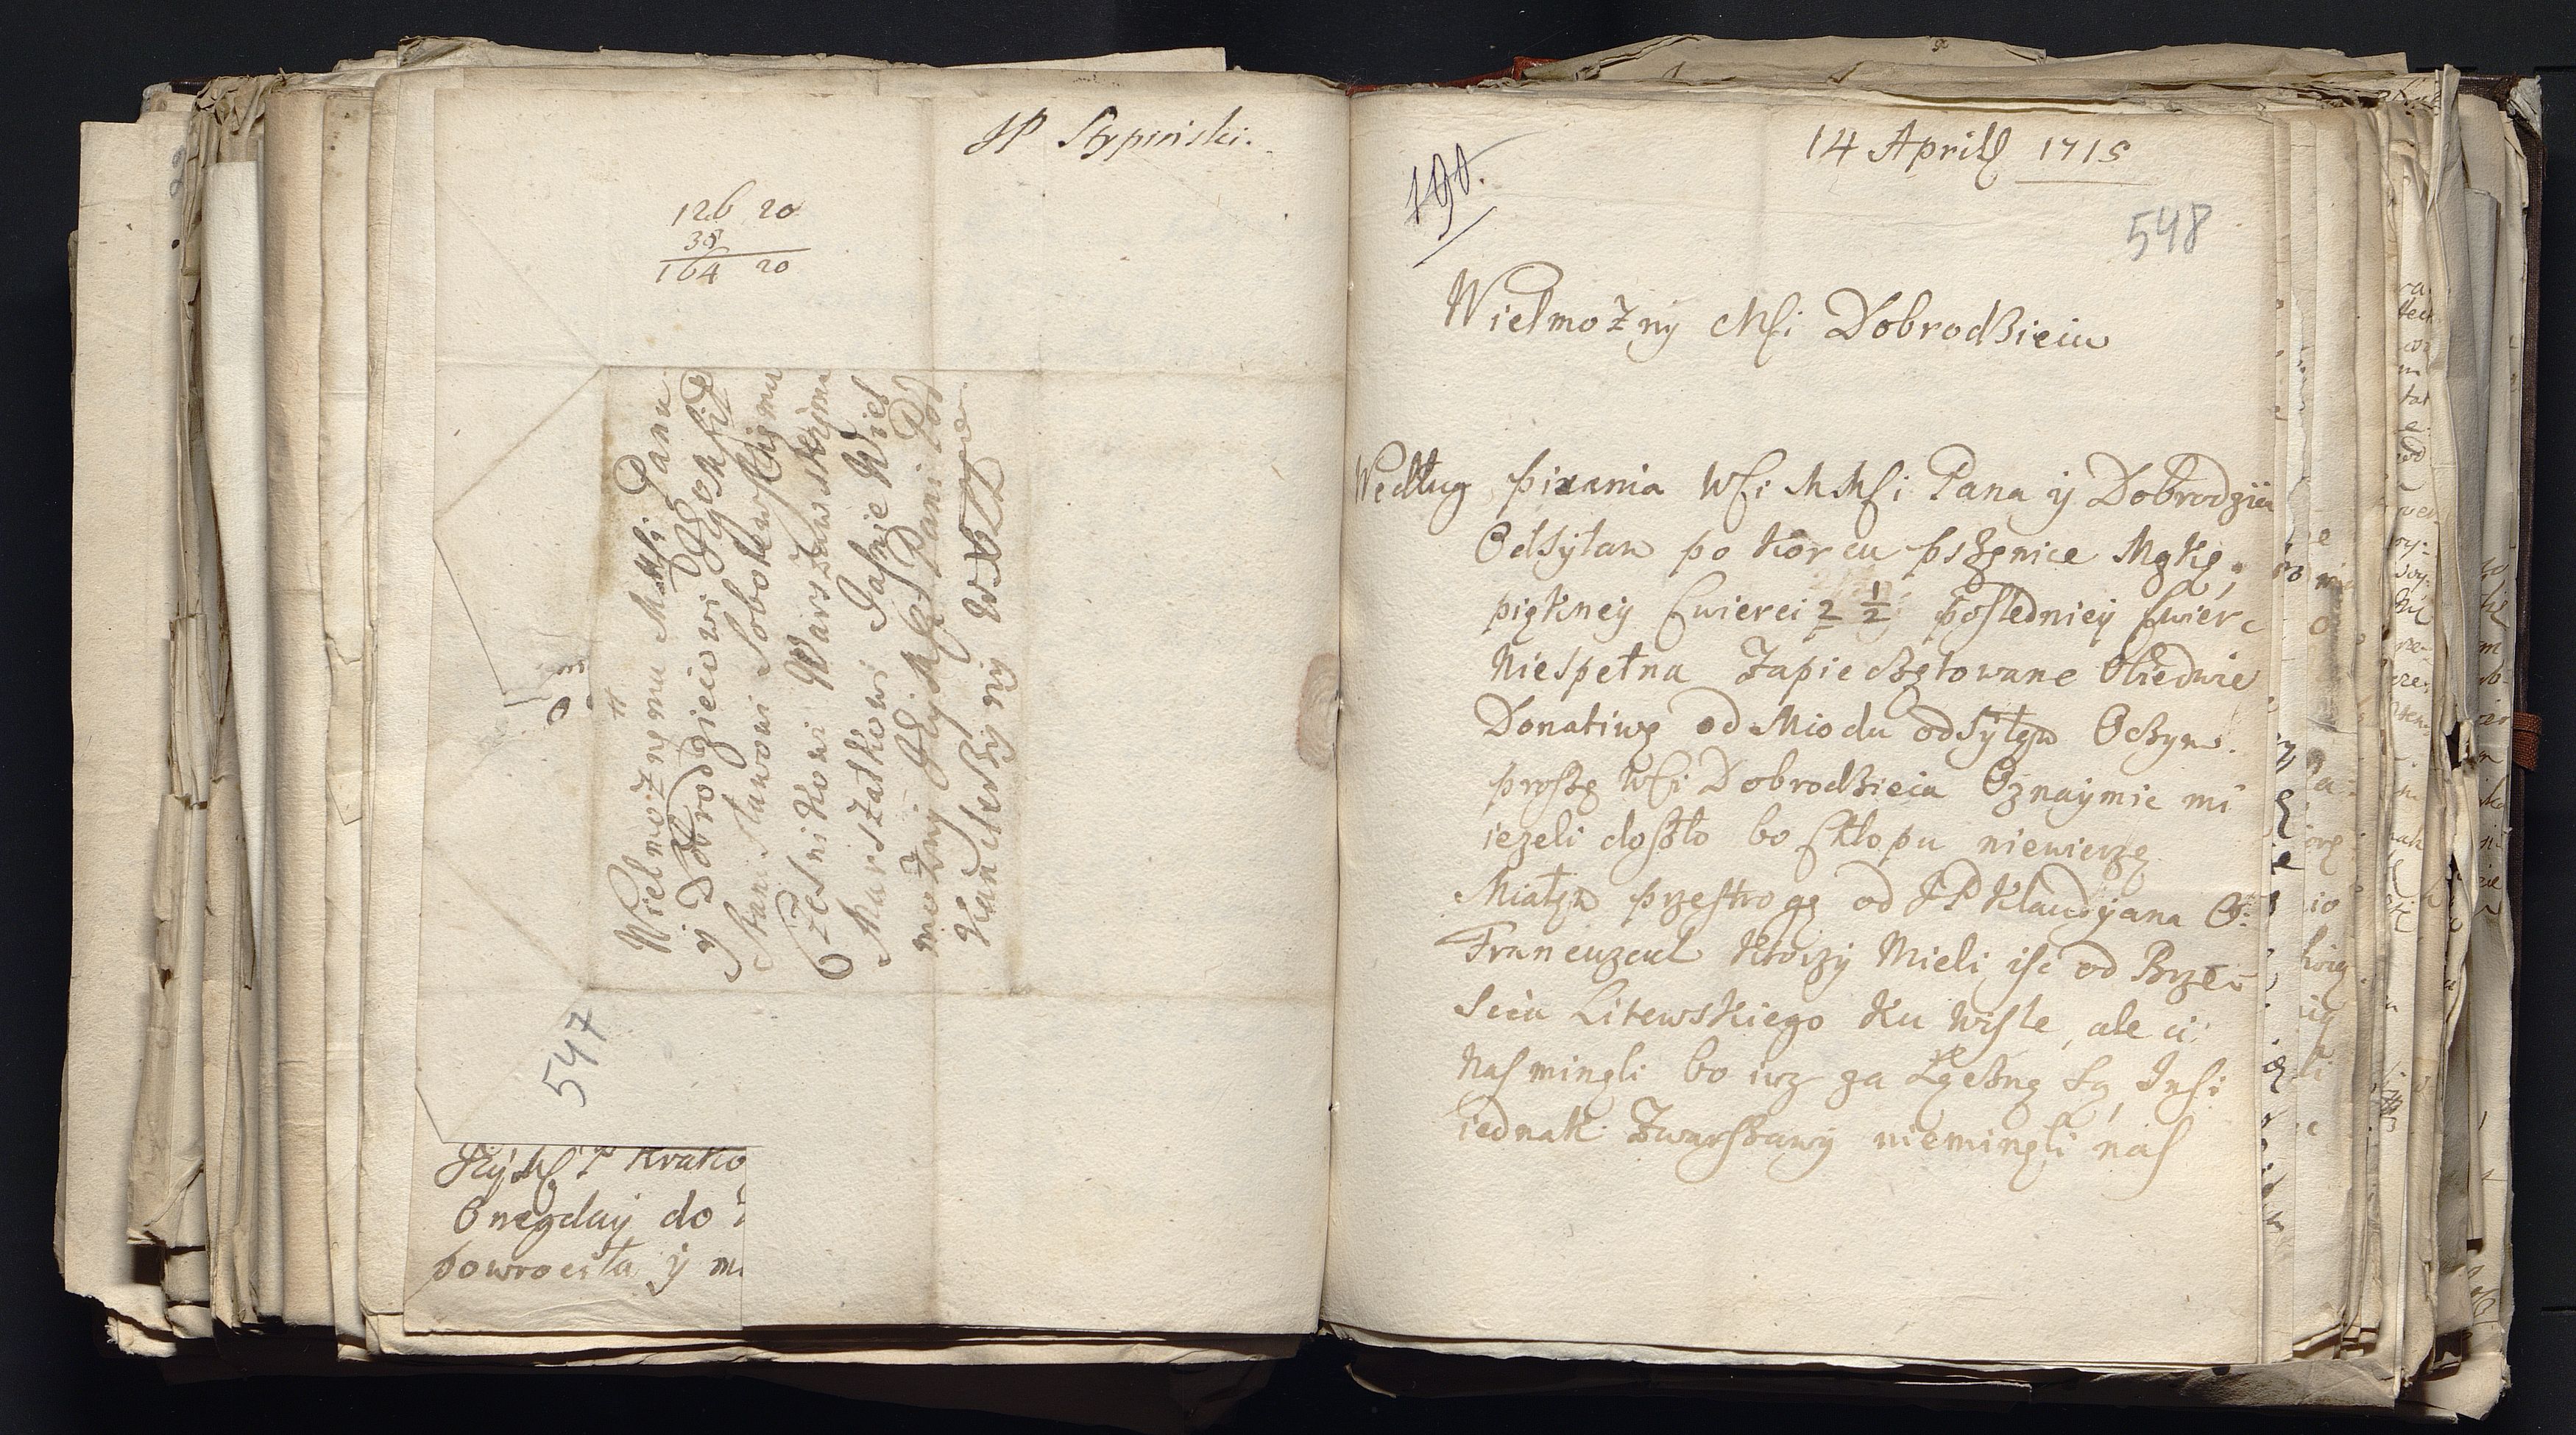 JP Stypinski.
126 20
38
164 20
Wielmożnemu MMsci Panu
y Dobrodzieiowi
Stanisławowi Sobolewskiemu
Czesnikowi Warszawskiemu
Marszałkowi Jasnie Wiel
możny Pani Pod
Kanclerzyny WXLL
547
Krako
Onegday do
powrociła y
190.
14 Aprilis 1715
548
Wielmożny Msci Dobrodzieiu
Według pisania WSci MMSci Pana y Dobrodzieia
Odsyłam po Korcu pszenice Mąkę,
piękney cwierci 2 1/2 posledniey cwierc
Niespełna Zapieczętowane Obiedwie
Donatiwę od Miodu odsyłam O czym
proszę WSci Dobrodzieia Oznaymic mi
iezeli doszło bo Chłopu niewierzę
Miałem przestrogę od JP Klaudyana O
Francuzach Ktorzy Mieli isc od Brze
scia Litewskiego Ku Wisle, ale ci
Nas mineli bo iuz za Łęczną Są, Insi
iednak Zwarszawy niemineli nas